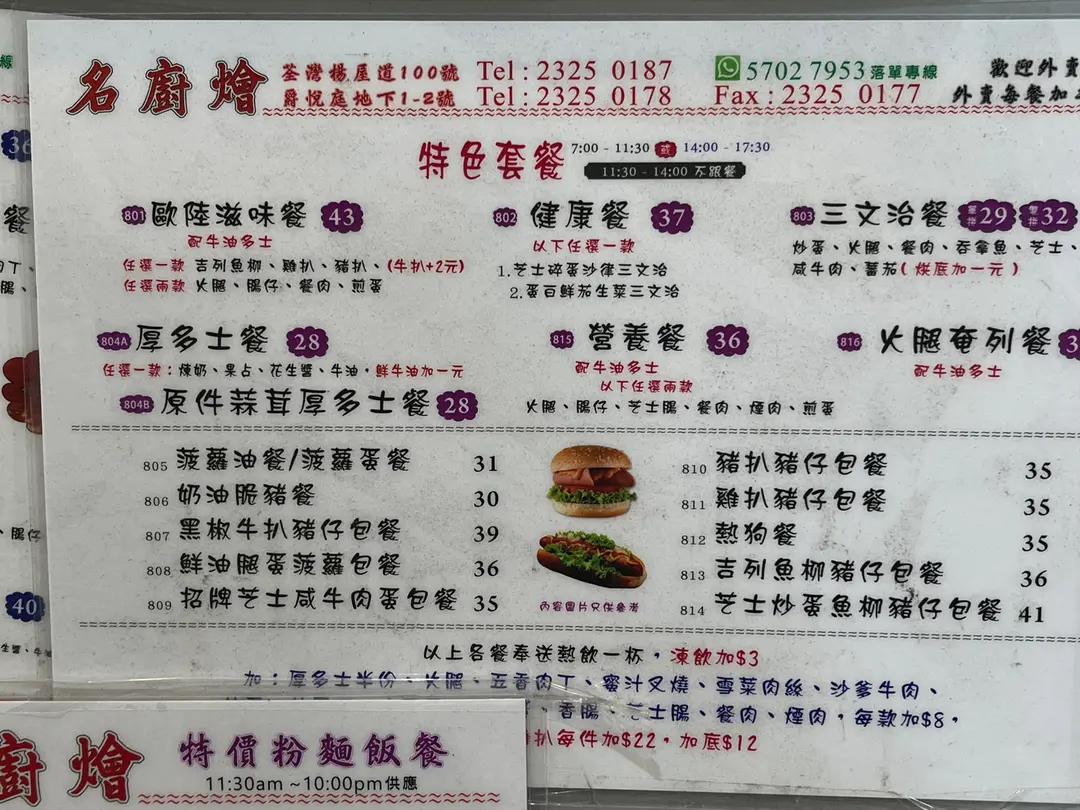 名廚燴
荃灣楊屋道100號 Tel : 2325 0187 5702 7953 落單專線 歡迎外賣
爵悅庭地下1-2號 Tel : 2325 0178 Fax : 2325 0177 外賣每餐加
特色套餐 7:00 - 11:30 或 14:00 - 17:30
11:30 - 14:00 不跟餐
801 歐陸滋味餐 43
配牛油多士
任選一款 吉列魚柳、雞扒、豬扒、(牛扒+2元)
任選兩款 火腿、腸仔、餐肉、煎蛋
802 健康餐 37
以下任選一款
1.芝士碎蛋沙律三文治
2.蛋白鮮茄生菜三文治
803 三文治餐 29 32
炒蛋、火腿、餐肉、吞拿魚、芝士、
咸牛肉、蕃茄( 烘底加一元 )
804A 厚多士餐 28
任選一款：煉奶、果占、花生醬、牛油，鮮牛油加一元
804B 原件蒜茸厚多士餐 28
815 營養餐 36
配牛油多士
以下任選兩款
火腿、腸仔、芝士腸、餐肉、煙肉、煎蛋
816 火腿奄列餐
配牛油多士
805 菠蘿油餐/菠蘿蛋餐 31
806 奶油脆豬餐 30
807 黑椒牛扒豬仔包餐 39
808 鮮油腿蛋菠蘿包餐 36
809 招牌芝士咸牛肉蛋包餐 35
內容圖片只供參考
810 豬扒豬仔包餐 35
811 雞扒豬仔包餐 35
812 熱狗餐 35
813 吉列魚柳豬仔包餐 36
814 芝士炒蛋魚柳豬仔包餐 41
以上各餐奉送熱飲一杯，凍飲加$3
加：厚多士半份、火腿、五香肉丁、蜜汁叉燒、雪菜肉絲、沙爹牛肉、
香腸、芝士腸、餐肉、煙肉，每款加$8，
扒每件加$22，加底$12
廚燴 特價粉麵飯餐
11:30am ~10:00pm供應
線
36
餐
肉丁、
腸、
、腸仔
40
生醬、牛